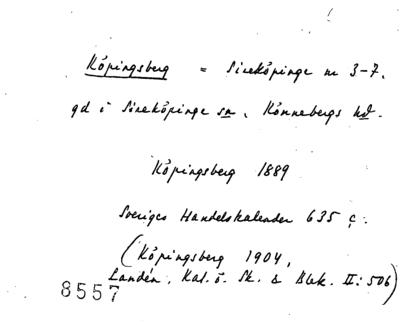 Köpingsberg = Sireköpinge nr 3-7.
gd i Sireköpinge sn, Rönnebergs hd.
Köpingsberg 1889
Sveriges Handelskalender 635 c.
(Köpingsberg 1904,
Landén, Kal. ö. Sk. & Blek. II:506)
8557